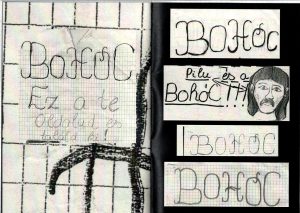 BOHÓC
Ez a te
oldalad, és
BOHÓC
Pilu és a
BohóC!!!
BOHÓC
BOHÓC